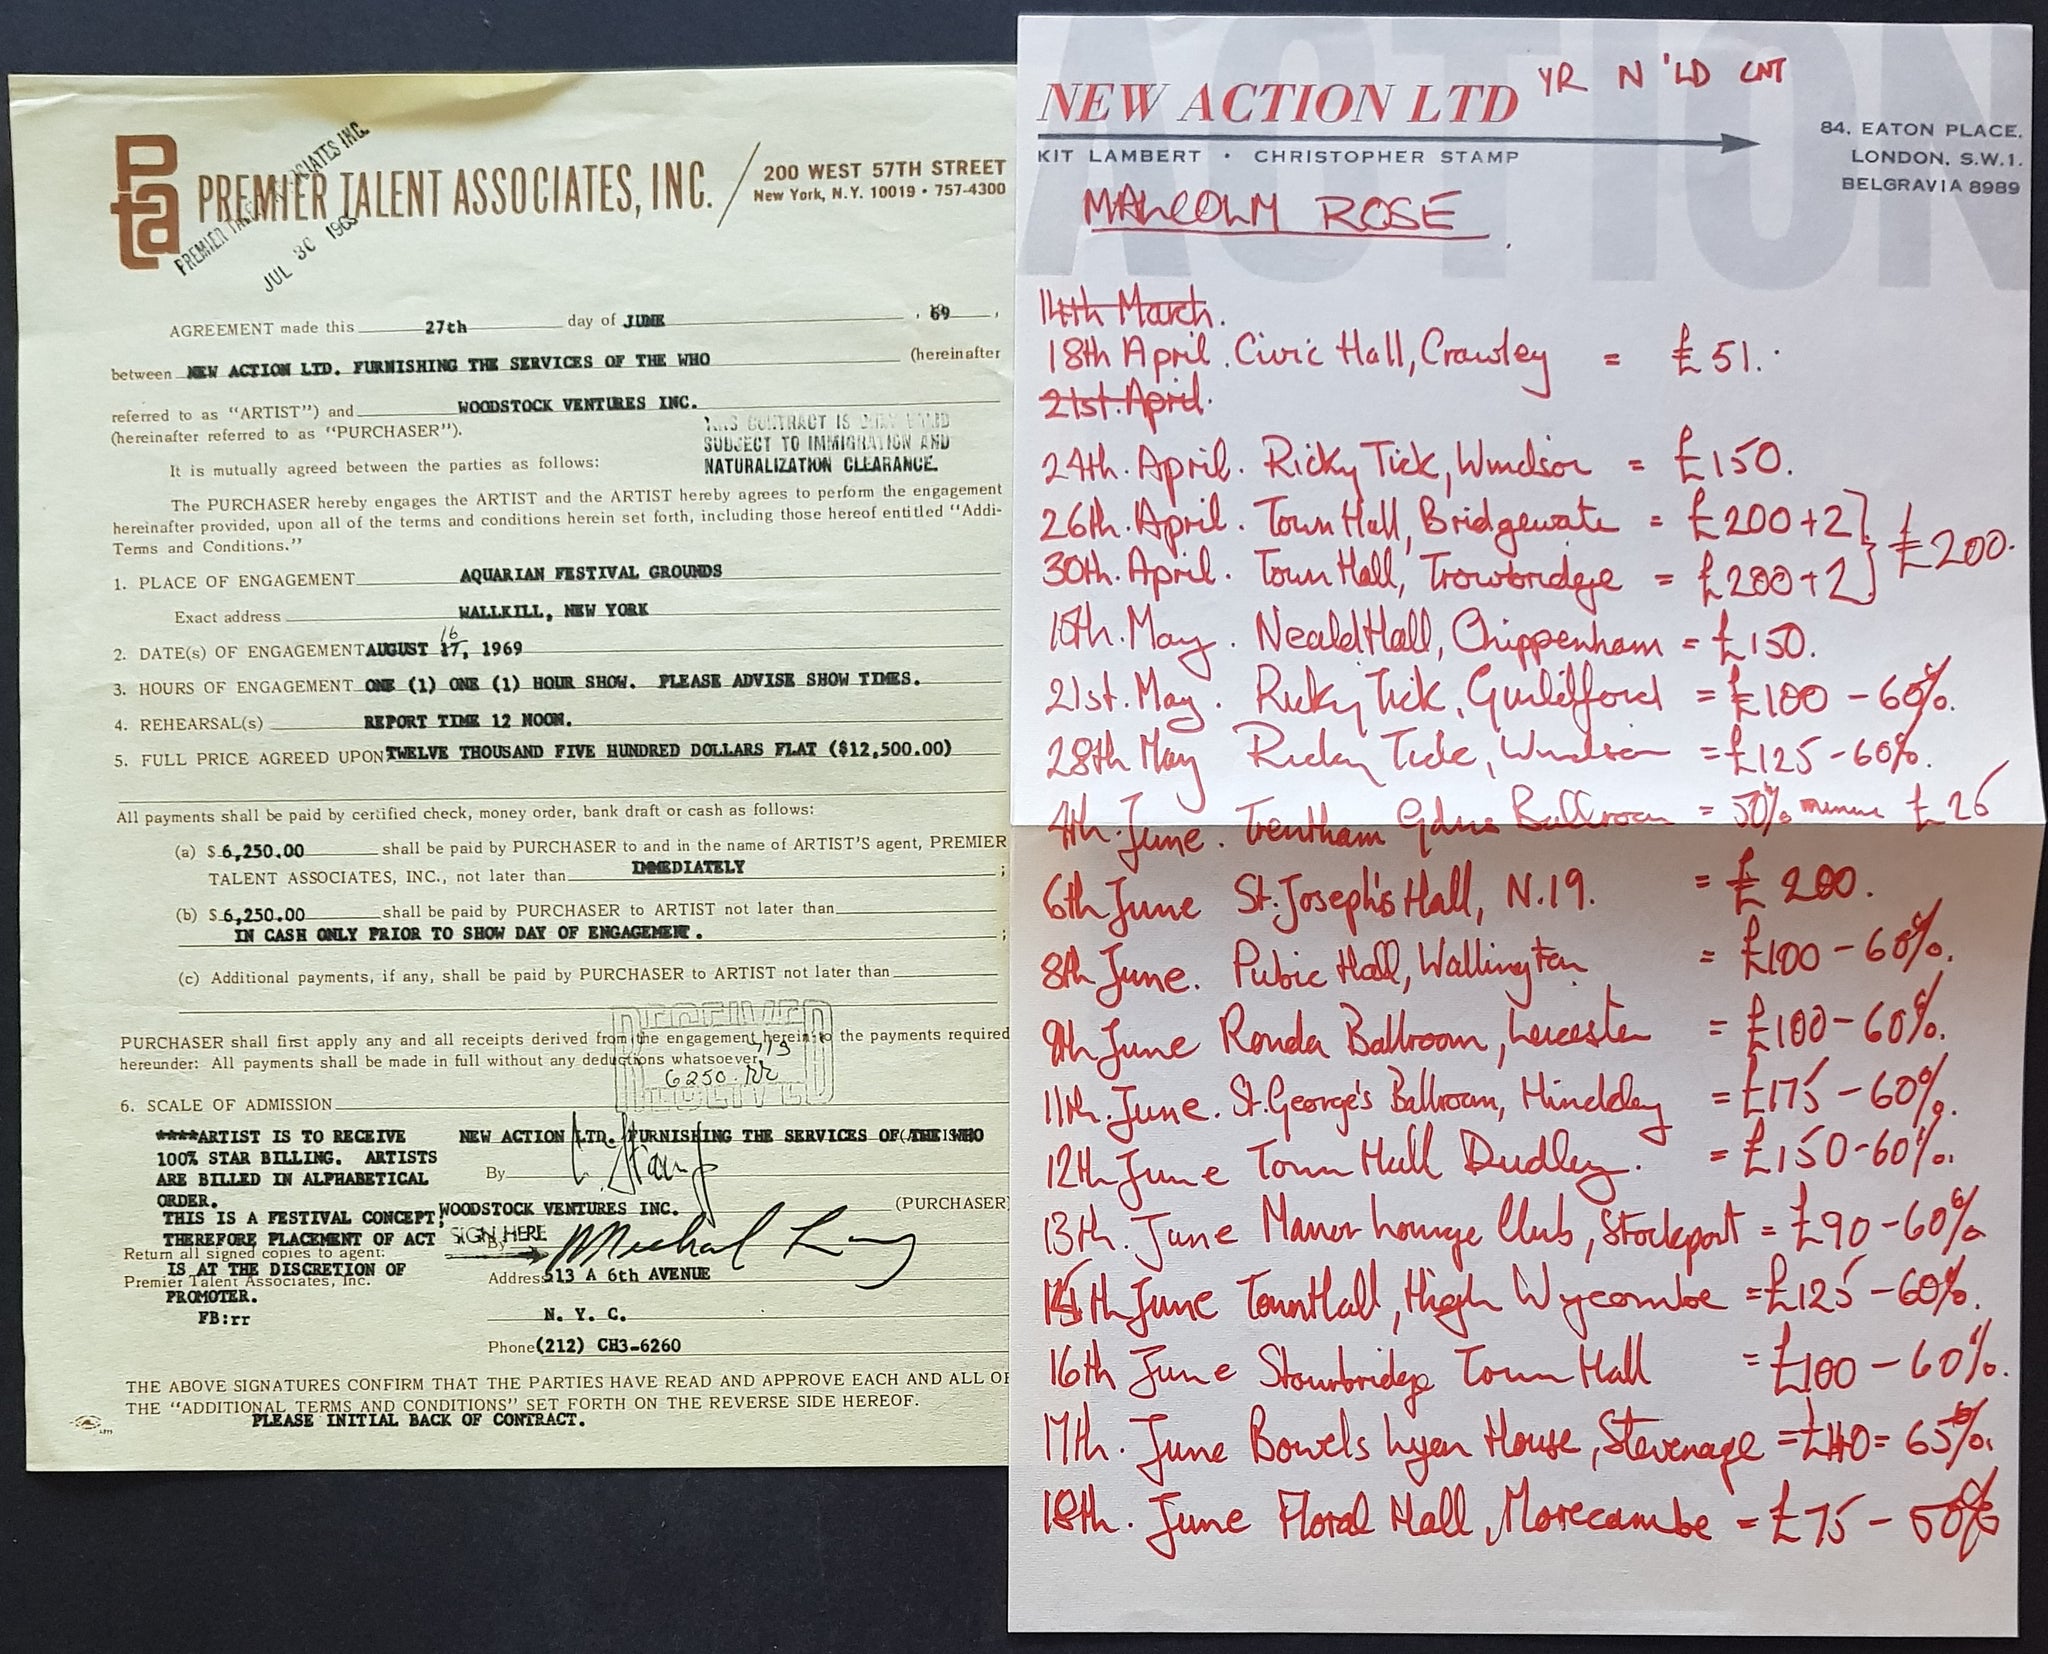 Pta
PREMIER TALENT ASSOCIATES, INC.
200 WEST 57TH STREET
New York, N.Y. 10019 • 757-4300
PREMIER TALENT ASSOCIATES INC.
JUL 30 1969
AGREEMENT made this 27th day of JUNE , 69 ,
between NEW ACTION LTD. FURNISHING THE SERVICES OF THE WHO (hereinafter
referred to as "ARTIST") and WOODSTOCK VENTURES INC.
(hereinafter referred to as "PURCHASER").
THIS CONTRACT IS ONLY VALID
SUBJECT TO IMMIGRATION AND
NATURALIZATION CLEARANCE.
It is mutually agreed between the parties as follows:
The PURCHASER hereby engages the ARTIST and the ARTIST hereby agrees to perform the engagement
hereinafter provided, upon all of the terms and conditions herein set forth, including those hereof entitled "Addi-
Terms and Conditions."
1. PLACE OF ENGAGEMENT AQUARIAN FESTIVAL GROUNDS
Exact address WALLKILL, NEW YORK
16
2. DATE(s) OF ENGAGEMENT AUGUST 17, 1969
3. HOURS OF ENGAGEMENT ONE (1) ONE (1) HOUR SHOW. PLEASE ADVISE SHOW TIMES.
4. REHEARSAL(s) REPORT TIME 12 NOON.
5. FULL PRICE AGREED UPON TWELVE THOUSAND FIVE HUNDRED DOLLARS FLAT ($12,500.00)
All payments shall be paid by certified check, money order, bank draft or cash as follows:
(a) $ 6,250.00 shall be paid by PURCHASER to and in the name of ARTIST'S agent, PREMIER
TALENT ASSOCIATES, INC., not later than IMMEDIATELY ;
(b) $ 6,250.00 shall be paid by PURCHASER to ARTIST not later than
IN CASH ONLY PRIOR TO SHOW DAY OF ENGAGEMENT. ;
(c) Additional payments, if any, shall be paid by PURCHASER to ARTIST not later than
RECEIVED
PURCHASER shall first apply any and all receipts derived from the engagement herein to the payments required
hereunder: All payments shall be made in full without any deductions whatsoever.
7/3
6250. RR
RECEIVED
6. SCALE OF ADMISSION
****ARTIST IS TO RECEIVE
100% STAR BILLING. ARTISTS
ARE BILLED IN ALPHABETICAL
ORDER.
THIS IS A FESTIVAL CONCEPT;
THEREFORE PLACEMENT OF ACT
Return all signed copies to agent:
IS AT THE DISCRETION OF
Premier Talent Associates, Inc.
PROMOTER.
FB:rr
NEW ACTION LTD. FURNISHING THE SERVICES OF THE WHO
By C. Stamp
WOODSTOCK VENTURES INC. (PURCHASER)
SIGN HERE
By Michael Lang
Address 513 A 6th AVENUE
N. Y. C.
Phone (212) CH3-6260
THE ABOVE SIGNATURES CONFIRM THAT THE PARTIES HAVE READ AND APPROVE EACH AND ALL OF
THE "ADDITIONAL TERMS AND CONDITIONS" SET FORTH ON THE REVERSE SIDE HEREOF.
PLEASE INITIAL BACK OF CONTRACT.
ACTION
NEW ACTION LTD
YR N 'LD CNT
KIT LAMBERT • CHRISTOPHER STAMP
84, EATON PLACE,
LONDON, S.W.1.
BELGRAVIA 8989
MALCOLM ROSE
14th March.
18th April. Civic Hall, Crawley = £51.
21st. April.
24th. April. Ricky Tick, Windsor = £150.
26th. April. Town Hall, Bridgewate = £200+2
30th. April. Town Hall, Trowbridge = £200+2
£200.
10th. May. Neald Hall, Chippenham = £150.
21st. May. Ricky Tick, Guildford = £100 - 60%.
28th May Ricky Tick, Windsor = £125 - 60%.
4th. June. Trentham Gdns Ballroom = 50% £26
6th June St. Joseph's Hall, N.19. = £200.
8th June. Pubic Hall, Wallington = £100 - 60%.
9th June Ronda Ballroom, Leicester = £100 - 60%.
11th. June. St. George's Ballroom, Hinckley = £175 - 60%.
12th June Town Hall Dudley. = £150 - 60%.
13th. June Manor Lounge Club, Stockport = £90 - 60%
15th June Town Hall, High Wycombe = £125 - 60%.
16th June Stourbridge Town Hall = £100 - 60%.
17th. June Bowes Lyon House, Stevenage = £40 = 65%.
18th. June Floral Hall, Morecambe = £75 - 50%